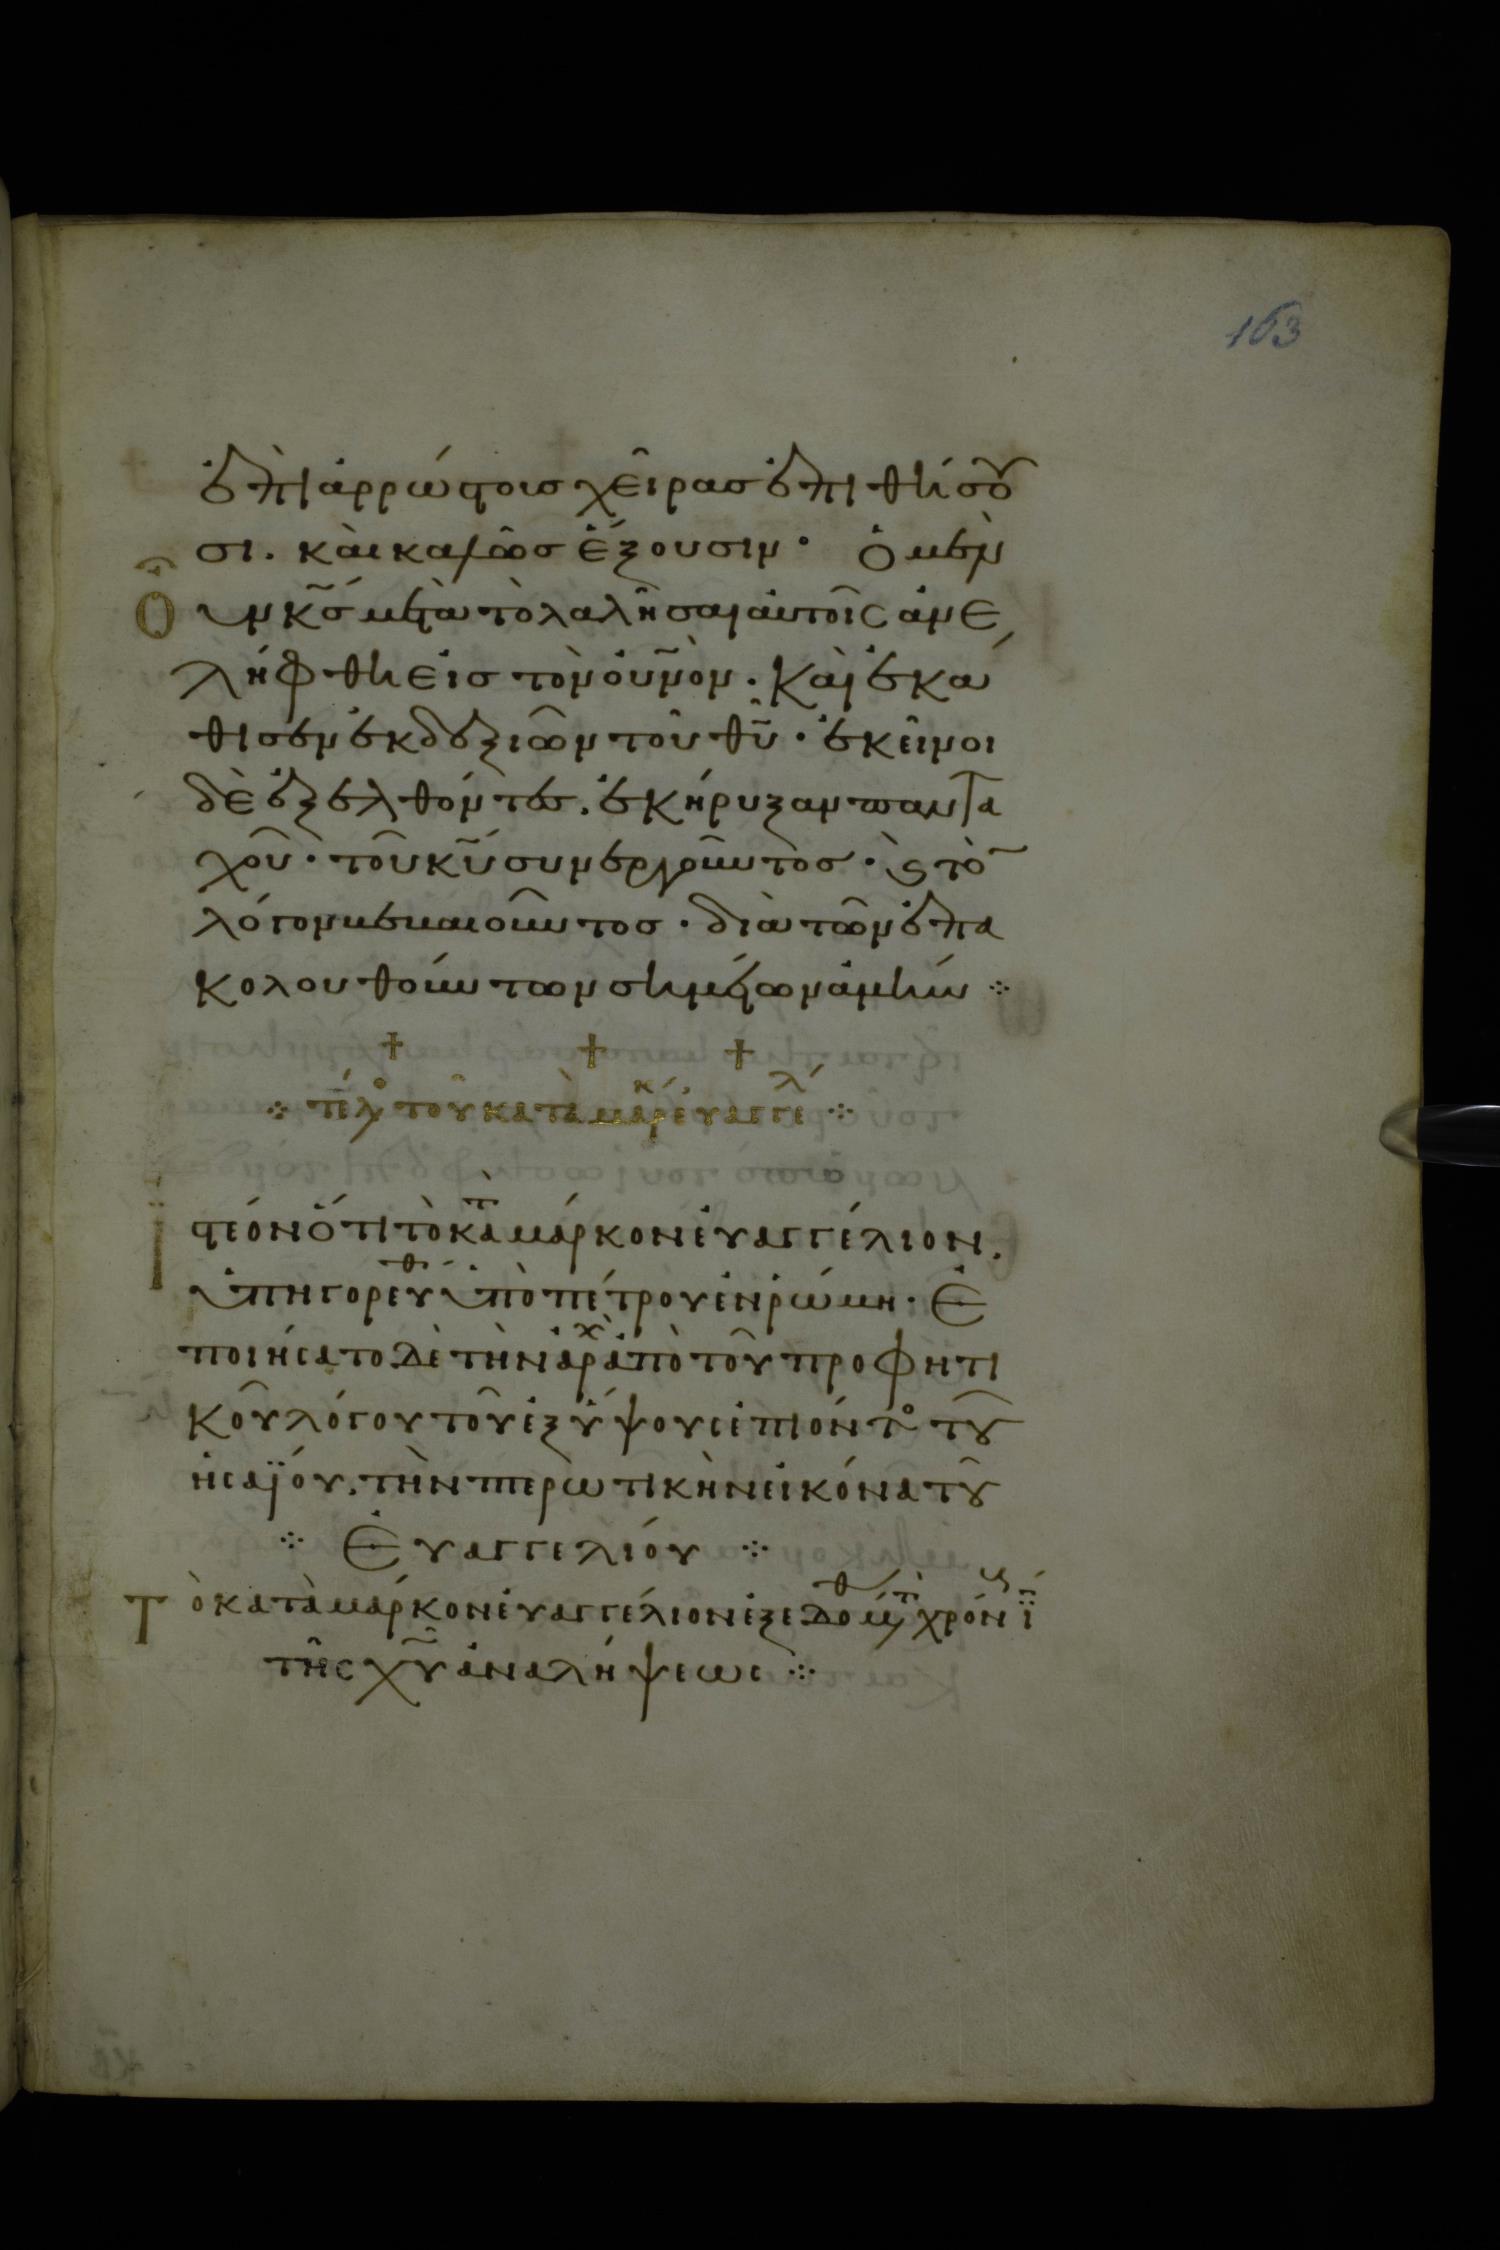 163
ἐπὶ ἀρρώστοις χεῖρας ἐπιθήσου
σι. καὶ καλῶς ἕξουσιν· Ὁ μὲν
οὖν κ̅ς̅ μετὰ τὸ λαλῆσαι αὐτοῖς ἀνε
λήφθη εἰς τὸν ου̅νο̅ν. Καὶ ἐκά
θισεν ἐκ δεξιῶν τοῦ θ̅υ̅· ἐκεῖνοι
δὲ ἐξελθόντες. ἐκήρυξαν παντα
χοῦ· τοῦ κ̅υ̅ συνεργοῦντος· ϗ τὸ
λόγον βεβαιοῦντος· διὰ τῶν ἐπα
κολουθούντων σημείων ἀμήν ⁘
† † †
⁘ τέλ° τοῦ κατὰ μάρκ εὐαγγελ ⁘
Ἰστέον ὅτι τὸ κατὰ μάρκον εὐαγγέλιον.
ὑπηγορεύθ ὑπὸ πέτρου ἐν ῥώμη· Ἐ
ποιήσατο δὲ τὴν ἀρχ ἀπὸ τοῦ προφητι
κοῦ λόγου τοῦ ἐξ ὕψους ἐπιόντ° τοῦ
ἡσαΐου. τὴν πτερωτικὴν εἰκόνα τοῦ
⁘ Εὐαγγελίου ⁘
Τὸ κατὰ μάρκον εὐαγγέλιον ἐξεδόθη μετὰ χρόν ϊ
τῆς χ̅υ̅ ἀναλήψεως ⁘